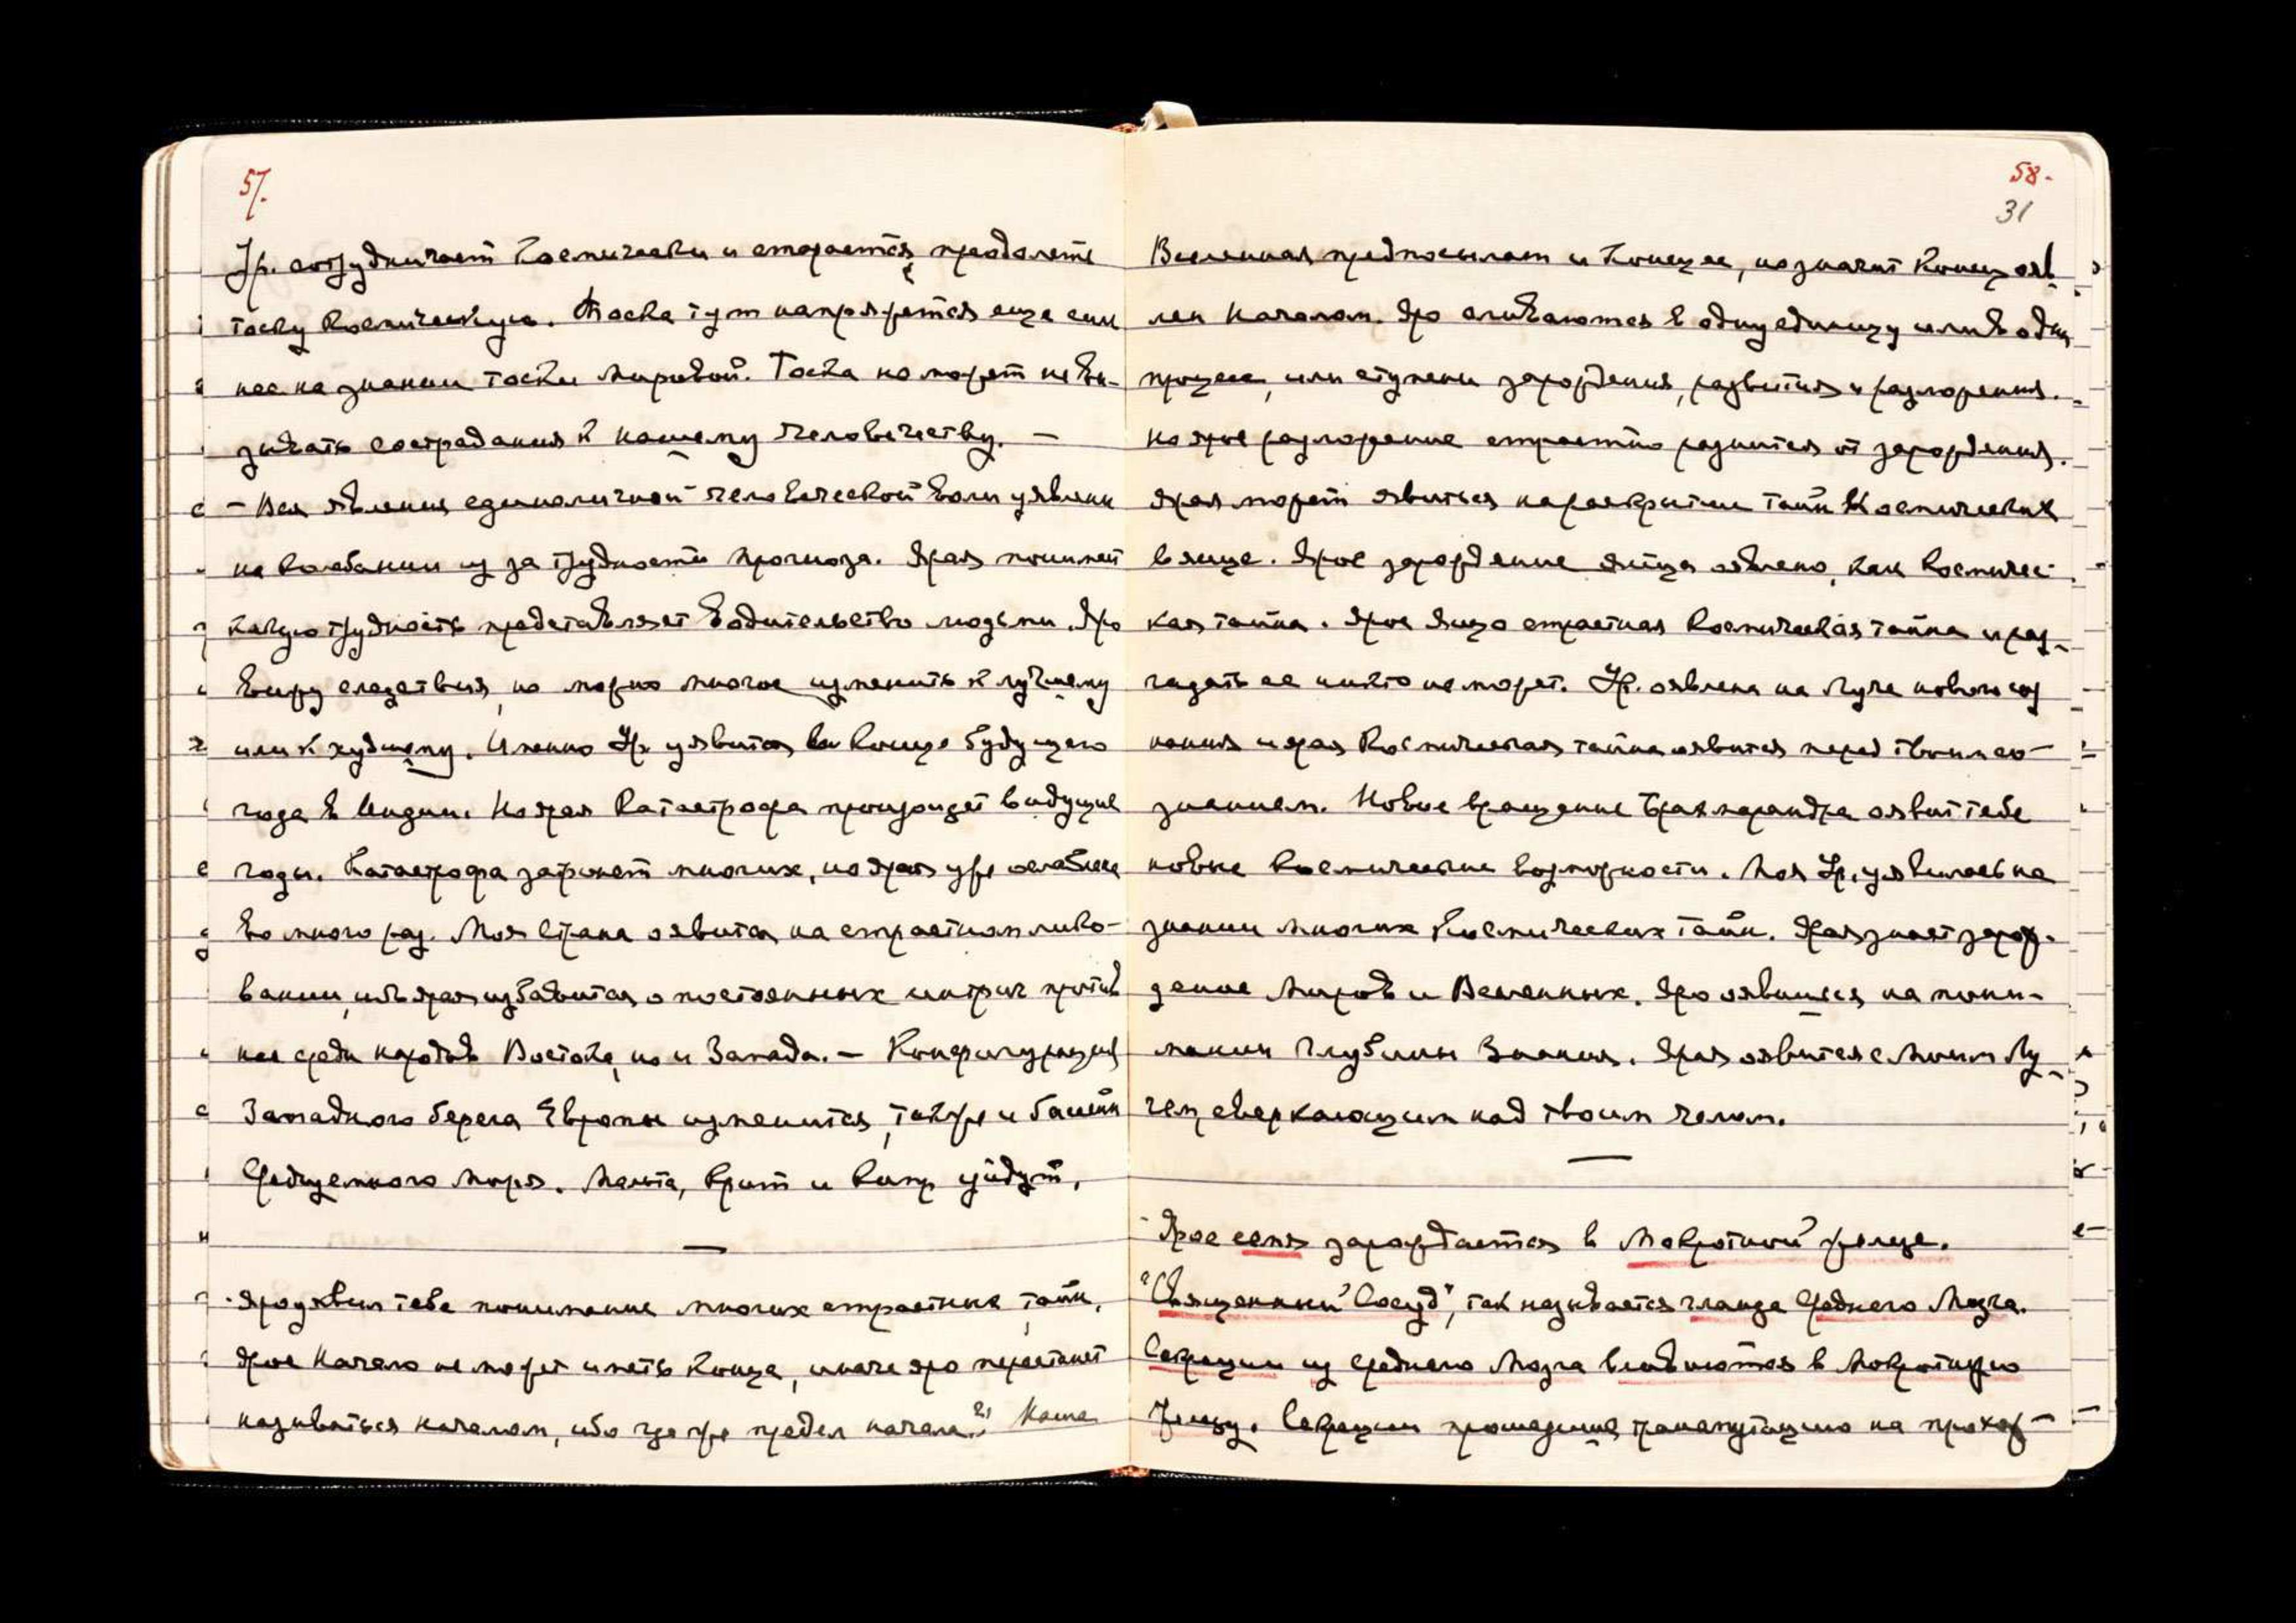 57.
Ур. сотрудничает Космически и старается преодолеть
тоску Космическую. Тоска тут напряжется еще силь
нее на знании тоски Мировой. Тоска не может не вы-
зывать сострадания к нашему человечеству. —
– Все явления единоличной человеческой воли уявлены
на колебании из за трудности прогноза. Ярая понимает
какую трудность представляет Водительство людьми. Яро
вижу следствия, но можно многое изменить к лучшему
или к худшему. Именно Ур. уявится в конце будущего
года в Индии. Но ярая Катастрофа произойдет в идущие
годы. Катастрофа затронет многих, но ярая уже ослаблена
во много раз. Моя Страна оявится на страстном лико-
вании, ибо ярая избавится от постоянных интриг против
нее среди народов Востока, но и Запада. – Конфигурация
Западного берега Европы изменится, также и бассейн
Средиземного Моря. Мальта, Крит и Кипр уйдут.
—
– Яро уявил тебе понимание многих страстных тайн.
Ярое Начало не может иметь Конца, иначе яро перестанет
называться началом, ибо где же предел начала?! Наша
58.
31
Вселенная предпосылает и Конец ее, но значит Конец ояв
лен Началом. Яро сливаются в одну единицу или в один
процесс, или ступени зарождения, развития и разложения.
Но ярое разложение страстно разнится от зарождения.
Ярая может явиться на раскрытии Тайн Космических
в яйце. Ярое зарождение яйца оявлено, как Космичес-
кая тайна. Ярое Яйцо страстная Космическая тайна и раз-
гадать ее никто не может. Ур. оявлена на Луче нового соз
нания и ярая Космическая тайна оявится перед твоим со-
знанием. Новое вращение Брамарандра оявит тебе
новые Космические возможности. Моя Ур. уявилась на
знании многих Космических Тайн. Ярая знает зарож-
дение Миров и Вселенных. Яро оявишься на пони-
мании Глубины Знания. Ярая оявится с Моим Лу-
чем, сверкающим над твоим челом.
—
– Ярое семя зарождается в Мокротной железе.
"Священный Сосуд", так называется гланда Среднего Мозга.
Секреции из Среднего Мозга вливаются в Мокротную
Железу. Секреции прошедшие трансмутацию на прохож-